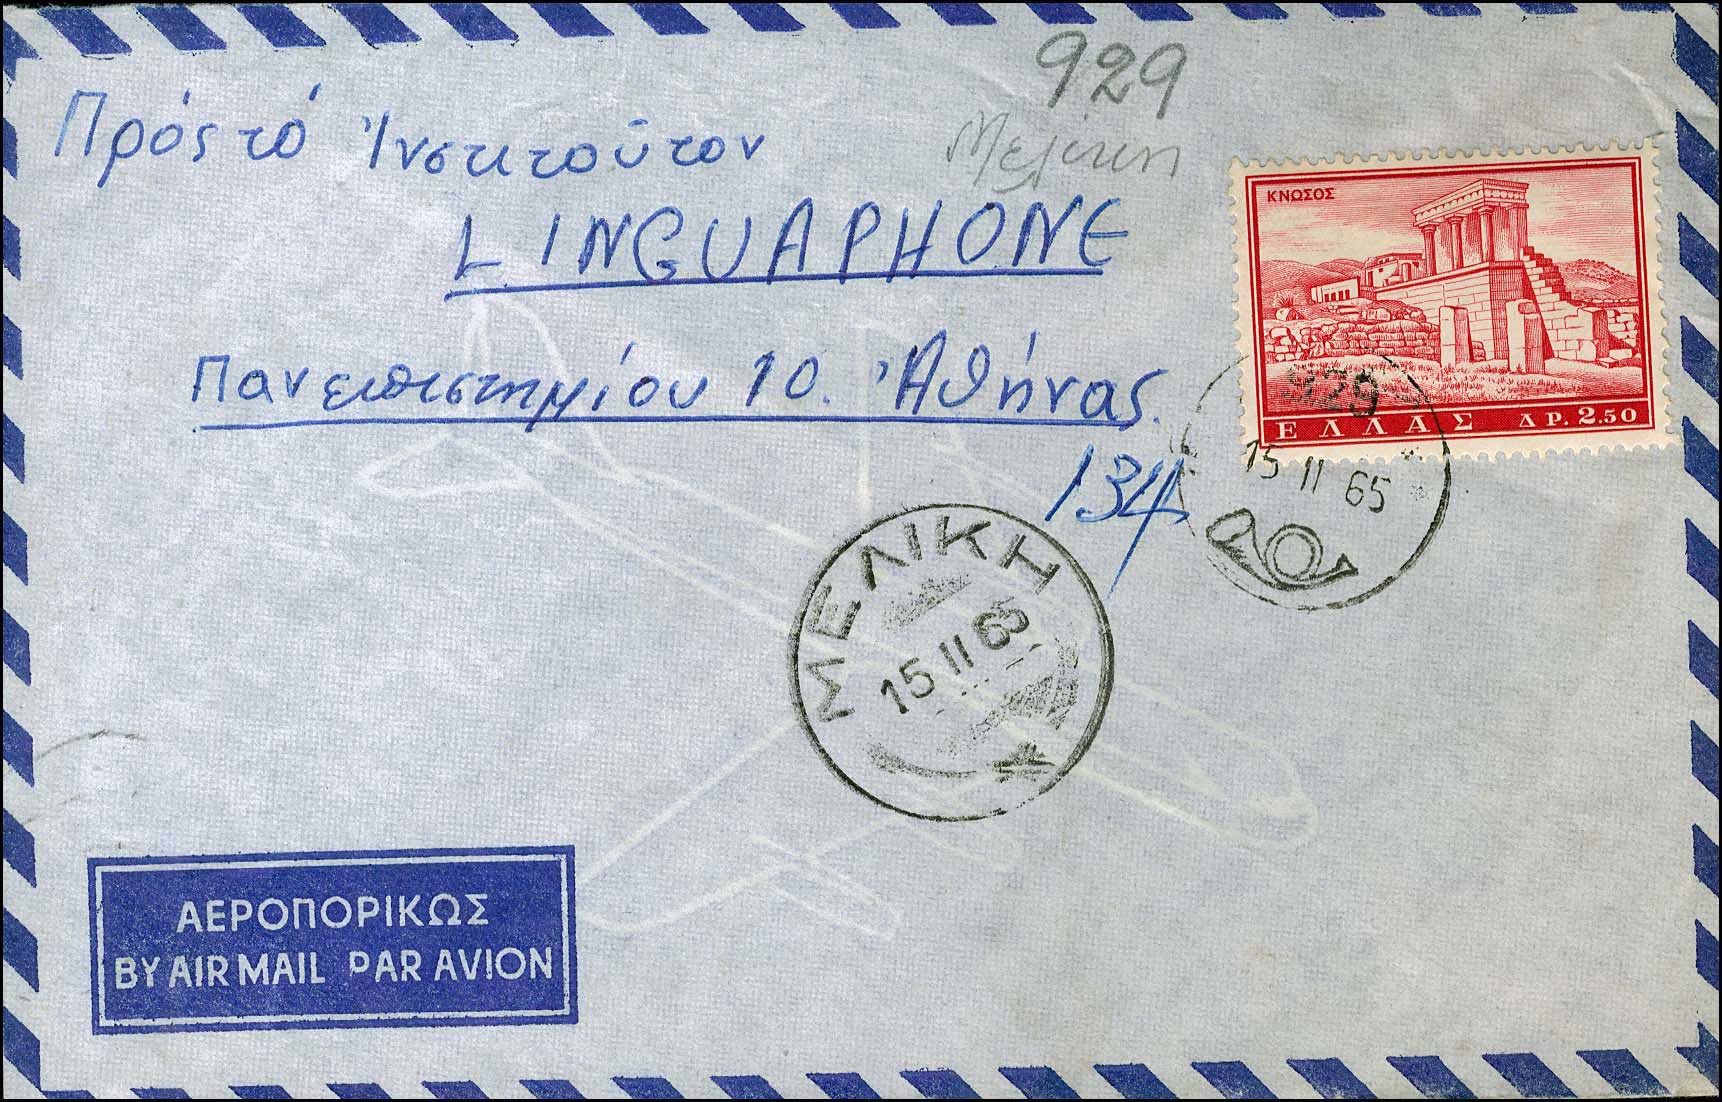 929
Μελίκη
Πρός τό Ἰνστιτοῦτον
LINGUAPHONE
Πανεπιστημίου 10. Ἀθήνας.
134
ΚΝΩΣΟΣ
ΕΛΛΑΣ ΔΡ. 2.50
929
15 II 65
ΜΕΛΙΚΗ
15 II 65
ΑΕΡΟΠΟΡΙΚΩΣ
BY AIR MAIL PAR AVION